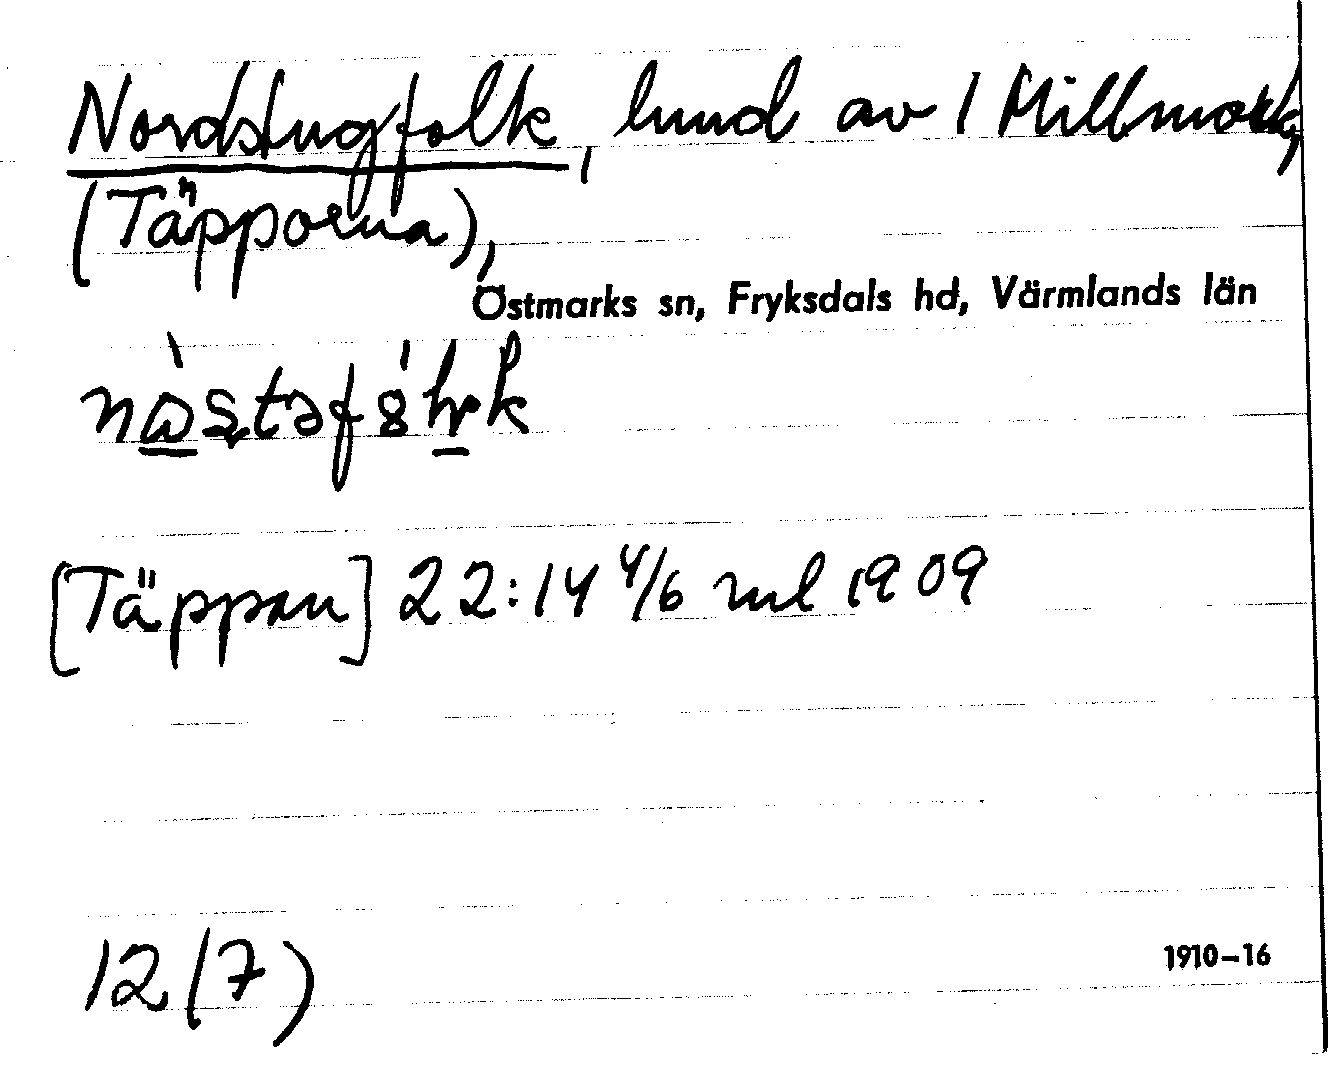 Nordstugfolk, lund av 1 Millmark,
(Täpporna),
Östmarks sn, Fryksdals hd, Värmlands län
[Täppan] 22:14 4/6 ml 1909
12(7)
1910–16